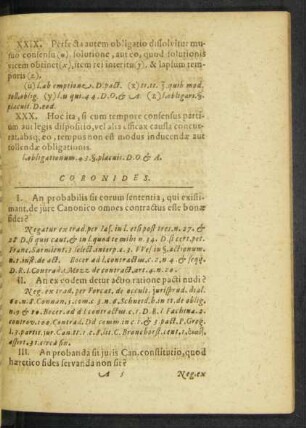 XXIX. Perfecta autem obligatio dissolvitur mu-
tuo consensu (u), solutione, aut eo, quod solutionis
vicem obtinet (x), item rei interitu (y), & lapsu tem-
poris (z).
(u) l. ab emptione, D. pact. (x) tt. tt. §. quib mod.
toll. oblig. (y) l. u qui 44. D. O, & A (z) l. obligare. §.
placuit. D. eod.
XXX. Hoc ita, si cum tempore consensus parti-
um aut legis dispositio, vel alia efficax causa concur-
rat, absq; eo, tempus non est modus inducendæ aut
tollendæ obligationis.
l. obligationum. 43. §. placuit. D. O. & A.
CORONIDES.
I. An probabilis sit eorum sententia, qui existi-
mant, de jure Canonico omnes contractus esse bonæ
fidei?
Negatur ex trad. per Jas. in l. etsi post tres. n. 27. &
28 D. si quis caut. & in l. quod te mihi n. 14. D. si cert. pet.
Franc. Sarmient. 1 select. interp. c. 7. VVes in §. actionum.
n. 1. inst. de act. Bocer ad l. contractus. c. 7. n. 4 & seqq.
D. R. I. Contrad. Menoz de contract. art. 4. n. 20.
II. An ex eodem detur actio ratione pacti nudi?
Neg. ex trad. per Forcat. de occult. jurisprud. dial.
60. n. 8. Connan. 5. com. c. 3. n. 4. Schneid.
n. 9 & 10. Bocer. ad d. l. contractus c. 1. D. R. I. Fachin.
controv. 100. Contrad. Dd comm in c. 1. & 3 pact. P. Greg.
III. An probanda sit juris Can. constitutio, quod
hæretico fides servanda non sit?
A 3 Neg. ex